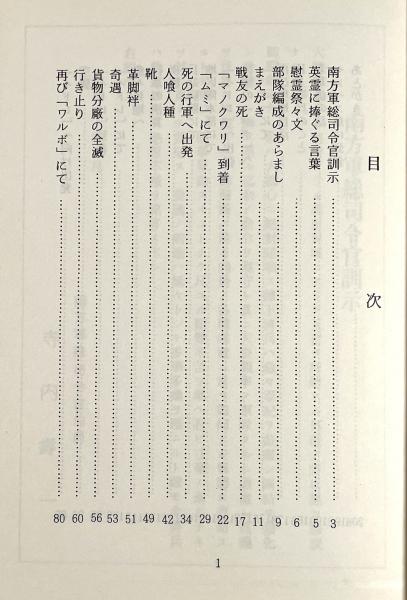 目次
南方軍総司令官訓示 3
英霊に捧ぐる言葉 5
慰霊祭々文 6
部隊編成のあらまし 9
まえがき 11
戦友の死 17
「マノクワリ」到着 22
「ムミ」にて 29
死の行軍へ出発 34
人喰人種 42
靴 49
革脚袢 51
奇遇 53
貨物分廠の全滅 56
行き止り 60
再び「ワルボ」にて 80
1